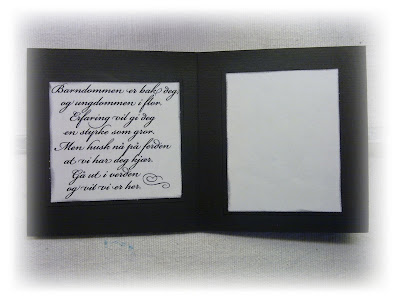 Barndommen er bak deg,
og ungdommen i flor.
Erfaring vil gi deg
en styrke som gror.
Men husk nå på ferden
at vi har deg kjær.
Gå ut i verden
og vit vi er her.